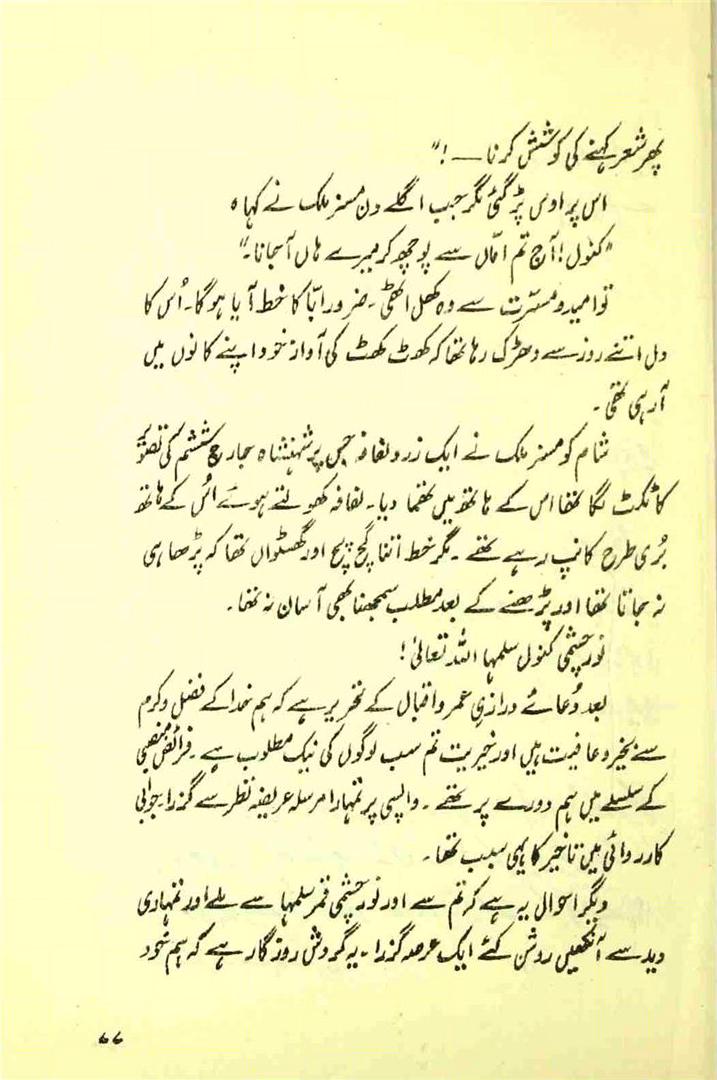 پھر شعر کہنے کی کوشش کرنا — !"
اس پر اوس پڑ گئی مگر جب اگلے دن مسز ملک نے کہا ہ
"کنول! آج تم امّاں سے پوچھ کر میرے ہاں آ جانا۔"
تو امید و مسرّت سے وہ کھل اٹھی۔ ضرور ابّا کا خط آیا ہوگا۔ اُس کا
دل اتنے روز سے دھڑک رہا تھا کہ کھوٹ کھٹ کی آواز خود اپنے کانوں میں
آ رہی تھی۔
شام کو مسز ملک نے ایک زرد لفافہ جس پر شہنشاہ جارج ششم کی تصویر
کا ٹکٹ لگا تھا اس کے ہاتھ میں تھما دیا۔ لفافہ کھولتے ہوئے اُس کے ہاتھ
بُری طرح کانپ رہے تھے۔ مگر خط اتنا گچ پچ اور گھسٹواں تھا کہ پڑھا ہی
نہ جاتا تھا اور پڑھنے کے بعد مطلب سمجھنا بھی آسان نہ تھا۔
نور چشمی کنول سلمہا اللہ تعالیٰ!
بعد دُعائے درازیِ عمر و اقبال کے تحریر ہے کہ ہم خدا کے فضل و کرم
سے بخیر و عافیت ہیں اور خیریت تم سب لوگوں کی نیک مطلوب ہے۔ فرائض منصبی
کے سلسلے میں ہم دورے پر تھے۔ واپسی پر تمہارا مرسلہ عریضہ نظر سے گزرا۔ جوابی
کارروائی میں تاخیر کا یہی سبب تھا۔
دیگر احوال یہ ہے کہ تم سے اور نور چشمی قمر سلمہا سے ملے اور تمہاری
دید سے آنکھیں روشن کئے ایک عرصہ گزرا۔ یہ گردش روزگار ہے کہ ہم خود
۷۷